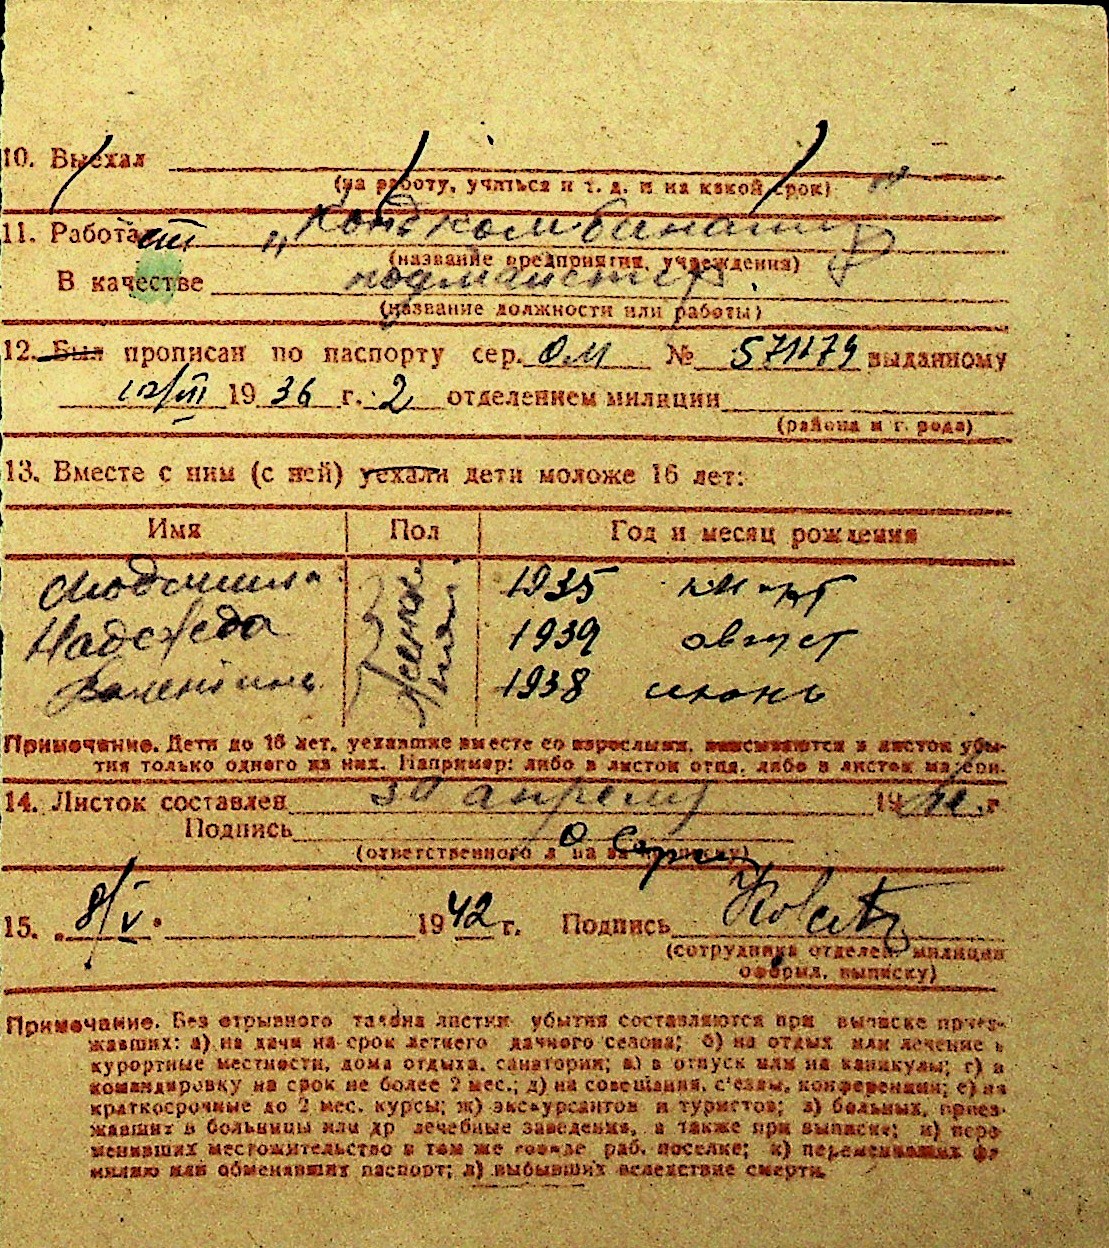 10. Выехал
(на работу, учиться и т. д. и на какой срок)
11. Работает „Кондкомбинат"
(название предприятия, учреждения)
В качестве подмайстер.
(название должности или работы)
12. Был прописан по паспорту сер. ОМ № выданному
12/VII 1936 г. 2 отделением милиции
(района и города)
13. Вместе с ним (с ней) уехали дети моложе 16 лет:
Имя Пол Год и месяц рождения
Людмила 1935 март
Надежда женская 1939 август
Валентина 1938 июнь
Примечание. Дети до 16 лет, уехавшие вместе со взрослыми, вписываются в листок убы-
тия только одного из них. Например: либо в листок отца, либо в листок матери.
14. Листок составлен 30 апреля 19 г.
Подпись
(ответственного лица за прописку)
15. „8/V" 1942 г. Подпись
(сотрудника отделен. милиции
оформл. выписку)
Примечание. Без отрывного талона листки убытия составляются при выписке приез-
жавших: а) на дачи на срок летнего дачного сезона; б) на отдых или лечение в
курортные местности, дома отдыха, санатории; в) в отпуск или на каникулы; г) в
командировку на срок не более 2 мес.; д) на совещания, с'езды, конференции; е) на
краткосрочные до 2 мес. курсы; ж) экскурсантов и туристов; з) больных, приез-
жавших в больницы или др лечебные заведения, а также при выписке; и) пере-
менивших местожительство в том же городе раб. поселке; к) переменивших фа-
милию или обменявших паспорт; л) выбывших вследствие смерти.